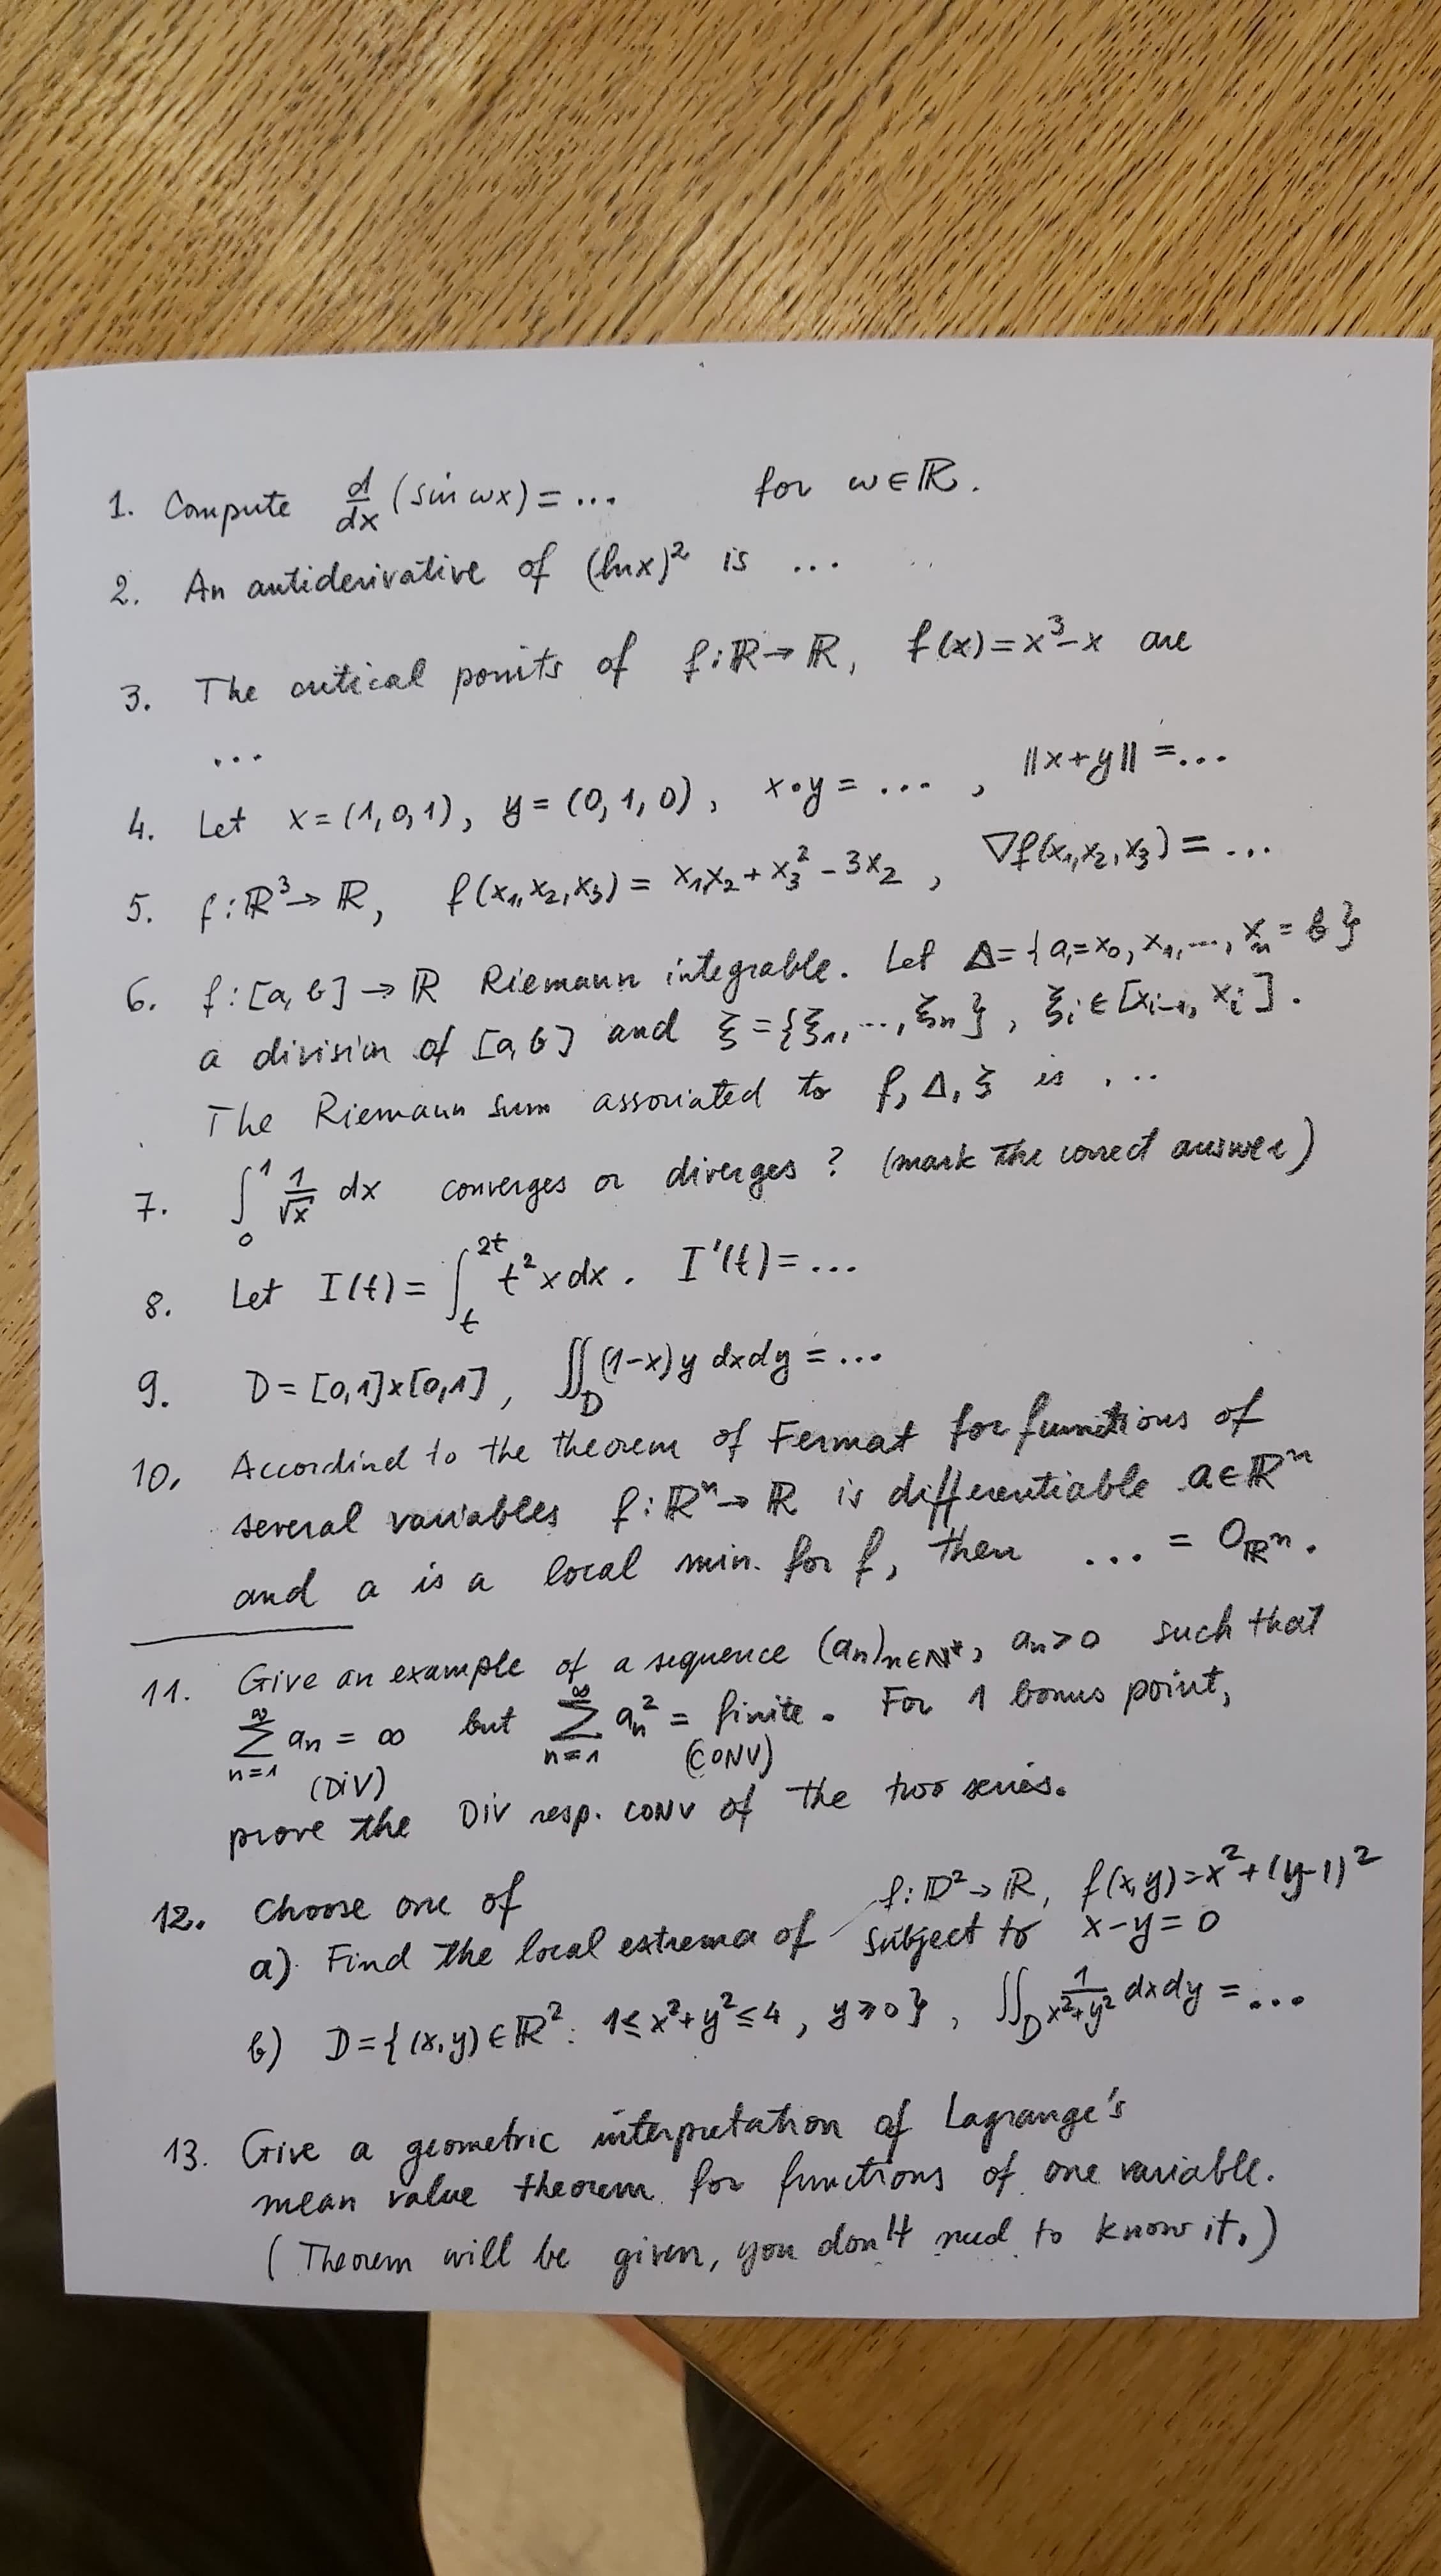 1. Compute d/dx (sin ωx) = ... for ω∈ℝ.
2. An antiderivative of (ln x)² is ...
3. The critical points of f:ℝ→ℝ, f(x)=x³-x are
...
4. Let x=(1,0,1), y=(0,1,0), x•y = ... , ||x+y|| = ...
5. f:ℝ³→ℝ, f(x₁,x₂,x₃) = x₁x₂+x₃²-3x₂ , ∇f(x₁,x₂,x₃) = ...
6. f:[a,b]→ℝ Riemann integrable. Let Δ={a=x₀,x₁,...,xₙ=b}
a division of [a,b] and ξ={ξ₁,...,ξₙ}, ξᵢ∈[xᵢ₋₁, xᵢ].
The Riemann sum associated to f, Δ, ξ is ...
7. ∫₀¹ 1/√x dx converges or diverges ? (mark the correct answer)
8. Let I(t) = ∫ₜ²ᵗ t² x dx . I'(t) = ...
9. D=[0,1]x[0,1], ∬_D (1-x)y dxdy = ...
10. Accordind to the theorem of Fermat for functions of
several variables f:ℝⁿ→ℝ is differentiable a∈ℝⁿ
and a is a local min. for f, then ... = 0_ℝⁿ.
11. Give an example of a sequence (aₙ)ₙ∈ℕ*, aₙ>0 such that
∞∑n=1 aₙ = ∞ but ∞∑n=1 aₙ² = finite. For 1 bonus point,
(DIV) (CONV)
prove the DIV resp. CONV of the two series.
12. Choose one of
a) Find the local extrema of f:𝔻²→ℝ, f(x,y)=x²+(y-1)²
subject to x-y=0
b) D={(x,y)∈ℝ²: 1≤x²+y²≤4, y≥0}, ∬_D 1/(x²+y²) dxdy = ...
13. Give a geometric interpretation of Lagrange's
mean value theorem for functions of one variable.
(Theorem will be given, you don't need to know it.)